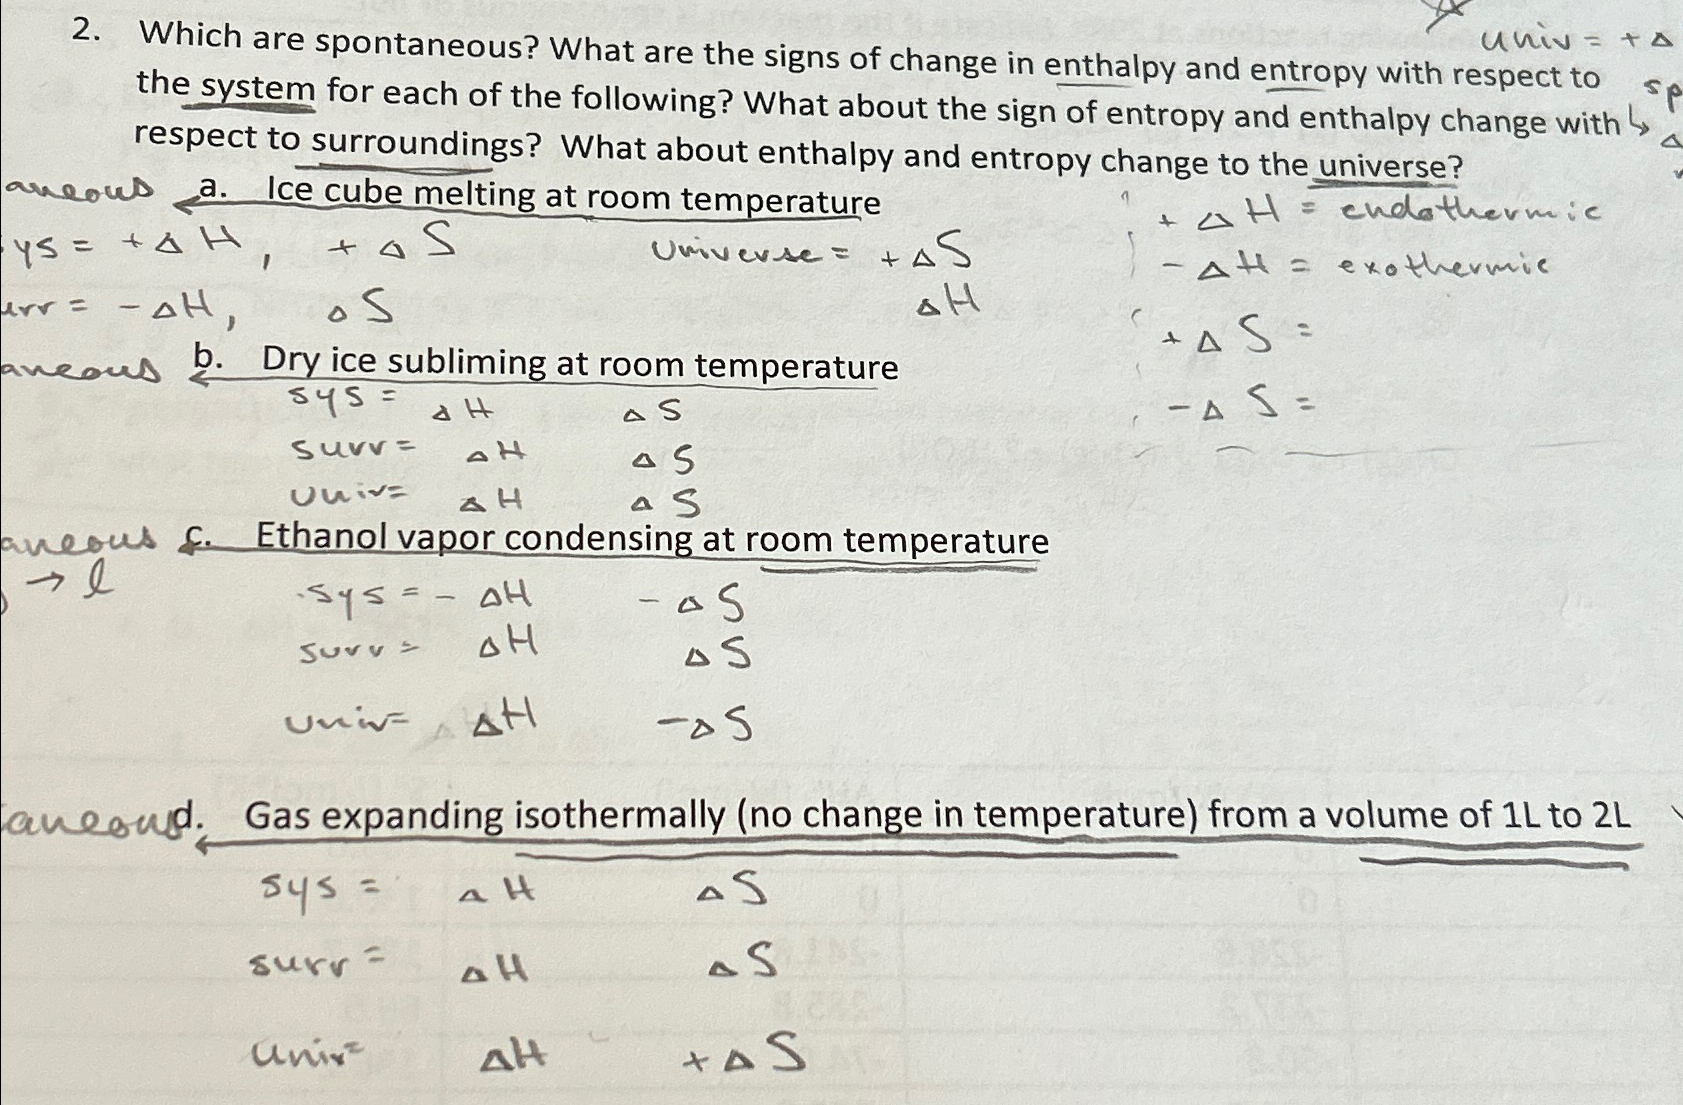 univ = + Δ
2. Which are spontaneous? What are the signs of change in enthalpy and entropy with respect to
the system for each of the following? What about the sign of entropy and enthalpy change with
↳ Δ
respect to surroundings? What about enthalpy and entropy change to the universe?
aneous a. Ice cube melting at room temperature
+ ΔH = endothermic
ys = + ΔH, + ΔS Universe = + ΔS
- ΔH = exothermic
urr = - ΔH, ΔS ΔH
+ ΔS =
aneous b. Dry ice subliming at room temperature
- ΔS =
sys = ΔH ΔS
surr = ΔH ΔS
univ = ΔH ΔS
aneous c. Ethanol vapor condensing at room temperature
→ l
sys = - ΔH - ΔS
surr = ΔH ΔS
univ = ΔH - ΔS
aneous d. Gas expanding isothermally (no change in temperature) from a volume of 1L to 2L
sys = ΔH ΔS
surr = ΔH ΔS
univ = ΔH + ΔS